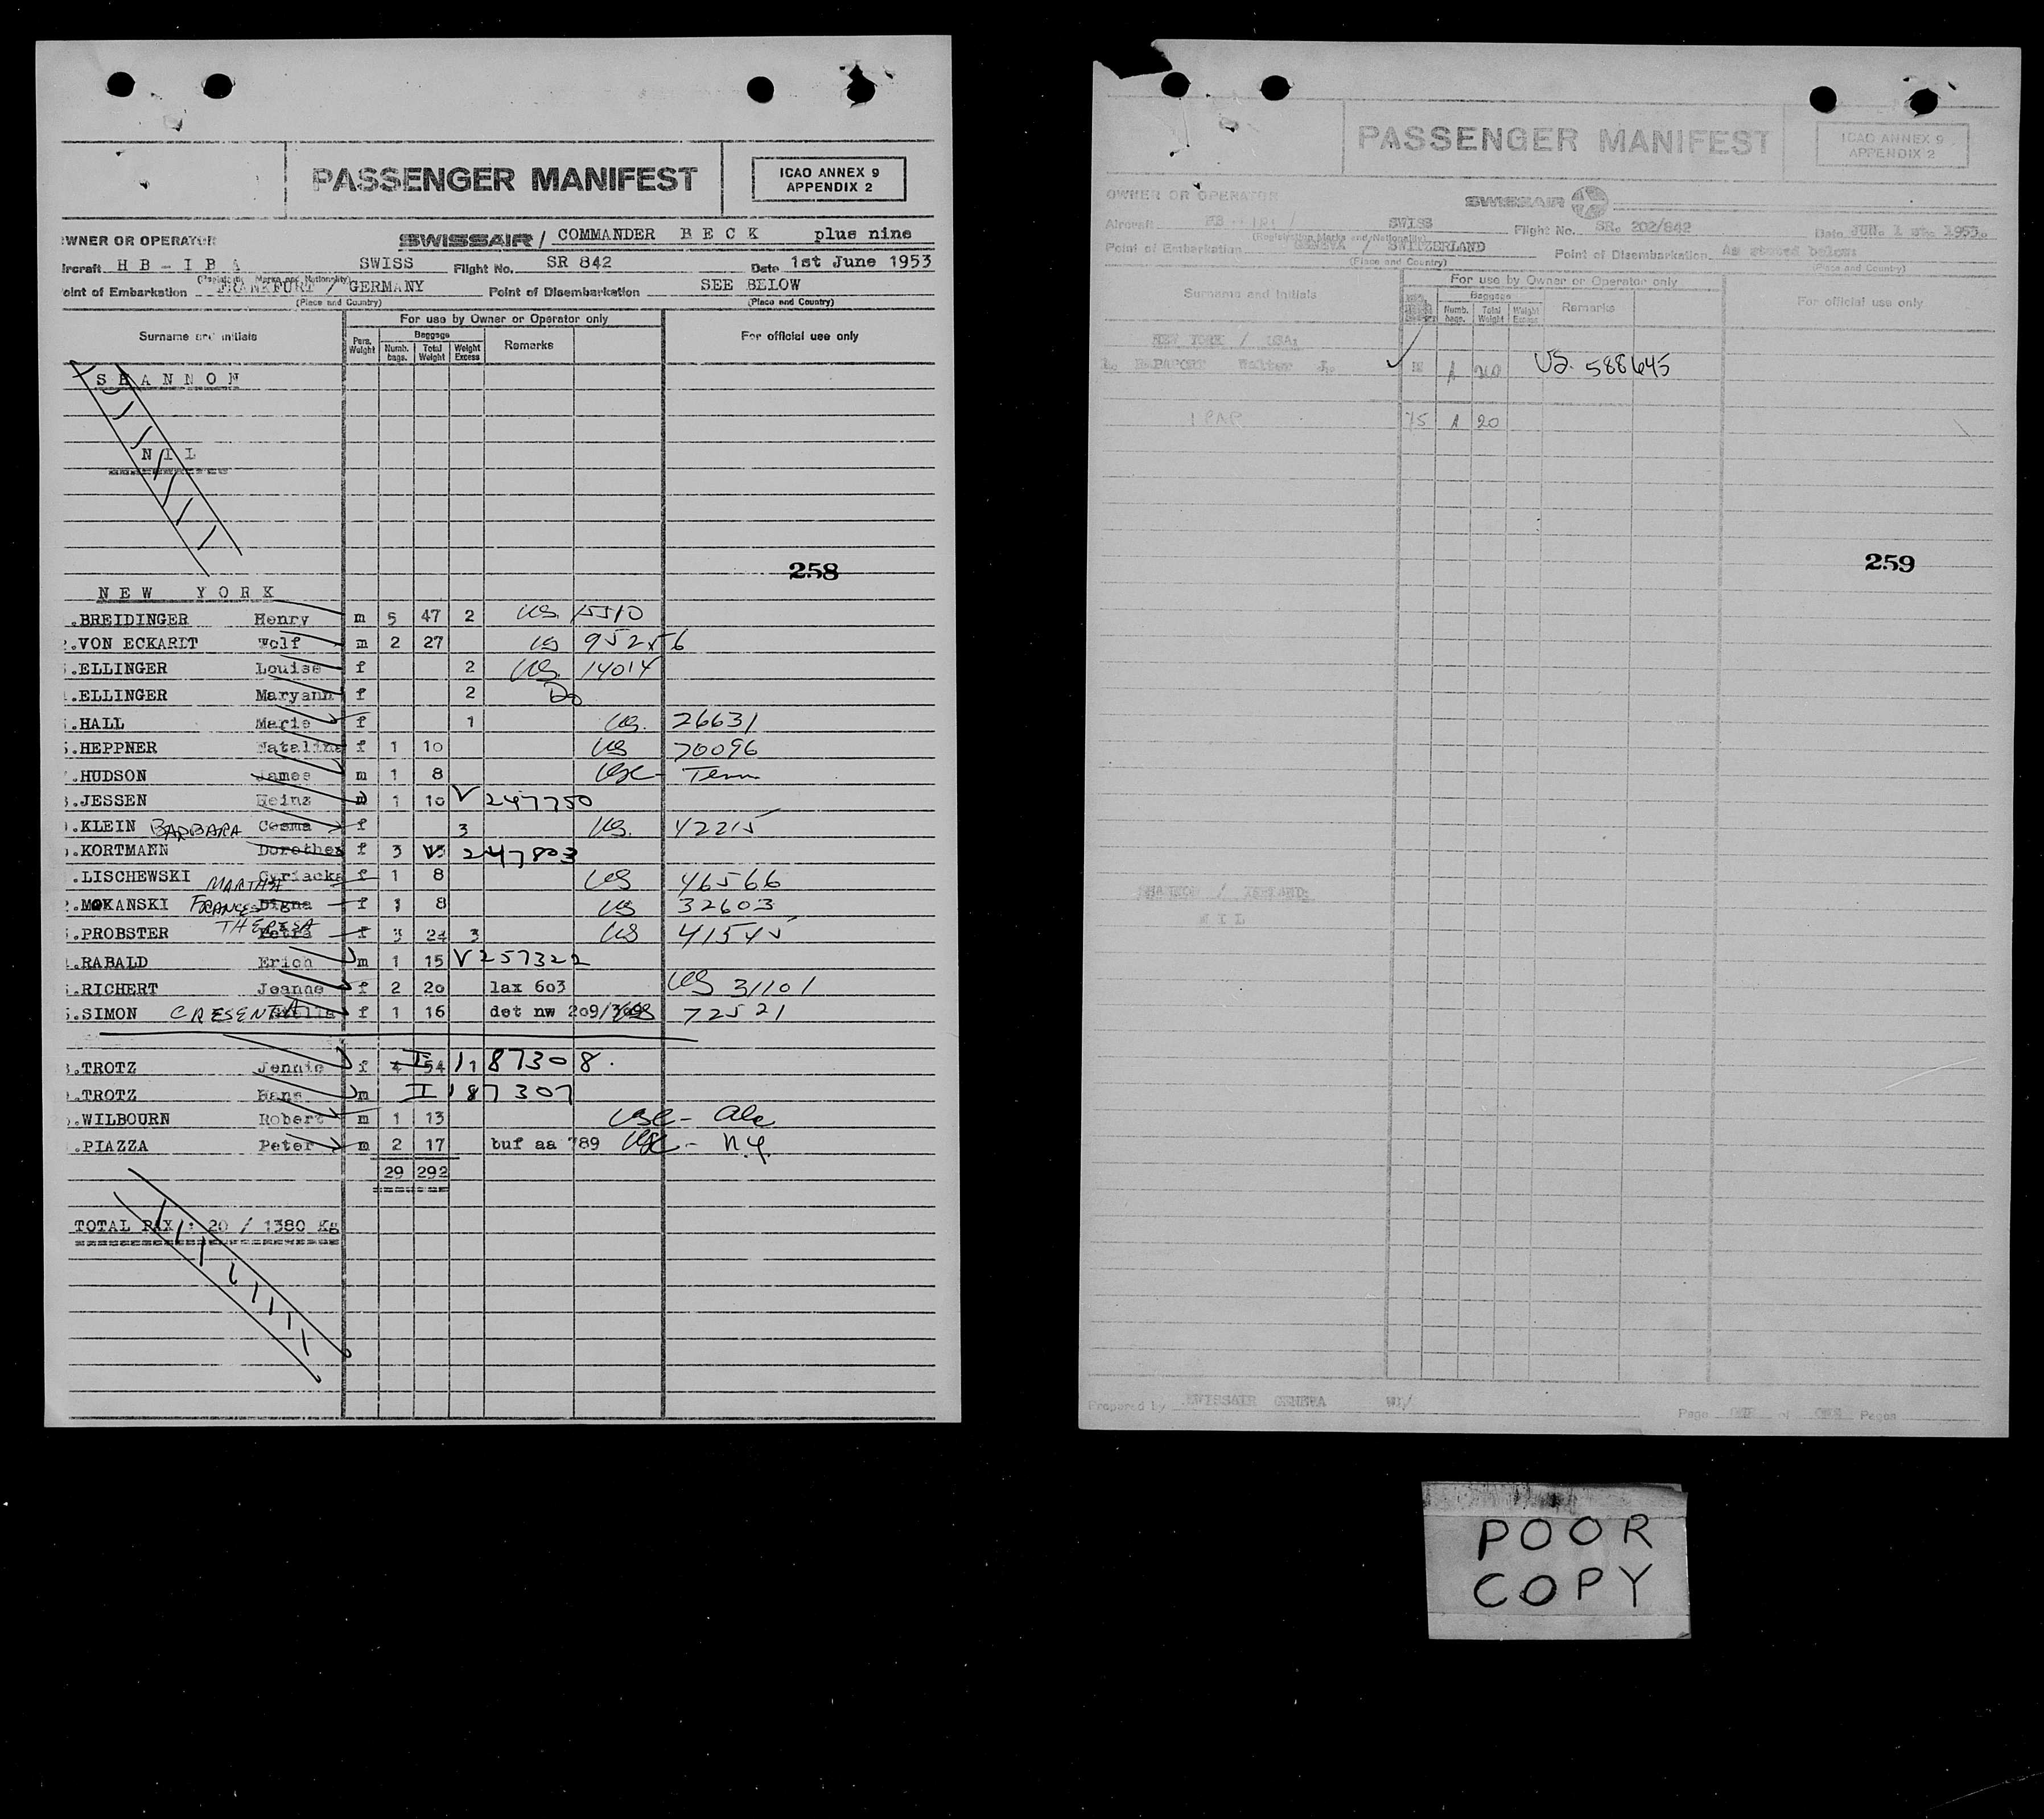 PASSENGER MANIFEST
ICAO ANNEX 9
APPENDIX 2
WNER OR OPERATOR SWISSAIR / COMMANDER B E C K plus nine
ircraft H B - I B A SWISS Flight No. SR 842 Date 1st June 1953
(Registration Marks and Nationality)
oint of Embarkation FRANKFURT / GERMANY Point of Disembarkation SEE BELOW
(Place and Country) (Place and Country)
Surname and initials For use by Owner or Operator only For official use only
Pers. Weight Baggage Remarks
Numb. bags. Total Weight Weight Excess
S H A N N O N
N I L
258
N E W Y O R K
.BREIDINGER Henry m 5 47 2 US 15510
.VON ECKARDT Wolf m 2 27 US 95256
.ELLINGER Louise f 2 US 14014
.ELLINGER Maryann f 2 Do
.HALL Marie f 1 US. 26631
.HEPPNER Natalina f 1 10 US 70096
.HUDSON James m 1 8 USC - Tenn
.JESSEN Heinz m 1 10 V 247750
.KLEIN BARBARA Cosma f 3 US. 42215
.KORTMANN Dorothea f 3 V 247803
.LISCHEWSKI MARTHA Cyriacka f 1 8 US 46566
.MOKANSKI FRANCES Digna f 1 8 US 32603
.PROBSTER THERESA Petra f 3 24 3 US 41545
.RABALD Erich m 1 15 V 257322
.RICHERT Jeanne f 2 20 lax 603 US 31101
.SIMON CRESENTIA f 1 16 det nw 209/ US 72521
.TROTZ Jennie f 4 54 I 187308.
.TROTZ Hans m I 187307
.WILBOURN Robert m 1 13 USC - Ala
.PIAZZA Peter m 2 17 buf aa 789 USC - N.Y.
29 292
TOTAL PAX : 20 / 1380 Kg
PASSENGER MANIFEST
ICAO ANNEX 9
APPENDIX 2
OWNER OR OPERATOR SWISSAIR
Aircraft SWISS Flight No. SR. 202/842 Date JUN. 1 st. 1953.
(Registration Marks and Nationality)
Point of Embarkation GENEVA / SWITZERLAND Point of Disembarkation As stated below:
(Place and Country) (Place and Country)
Surname and initials For use by Owner or Operator only For official use only
Baggage Remarks
Numb. bags. Total Weight Weight Excess
NEW YORK / USA:
1. RAPAPORT Walter J. M 1 20 US. 588645
1 PAP 75 1 20
259
SHANNON / IRELAND:
N I L
Prepared by SWISSAIR GENEVA Page ONE of ONE Pages
POOR
COPY